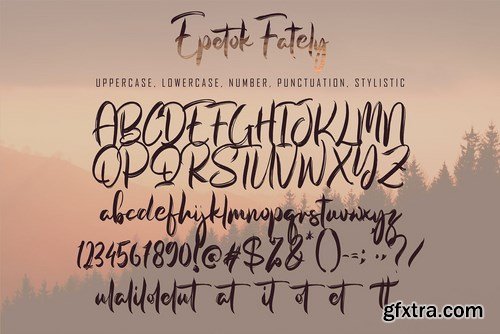 Epetok Fately
UPPERCASE, LOWERCASE, NUMBER, PUNCTUATION, STYLISTIC
ABCDEFGHIJKLMN
OPQRSTUVWXYZ
abcdefghijklmnopqrstuvwxyz
1234567890!@#$%&*()-:;"",./
ulalilolelut at it ot et tt
gfxtra.com